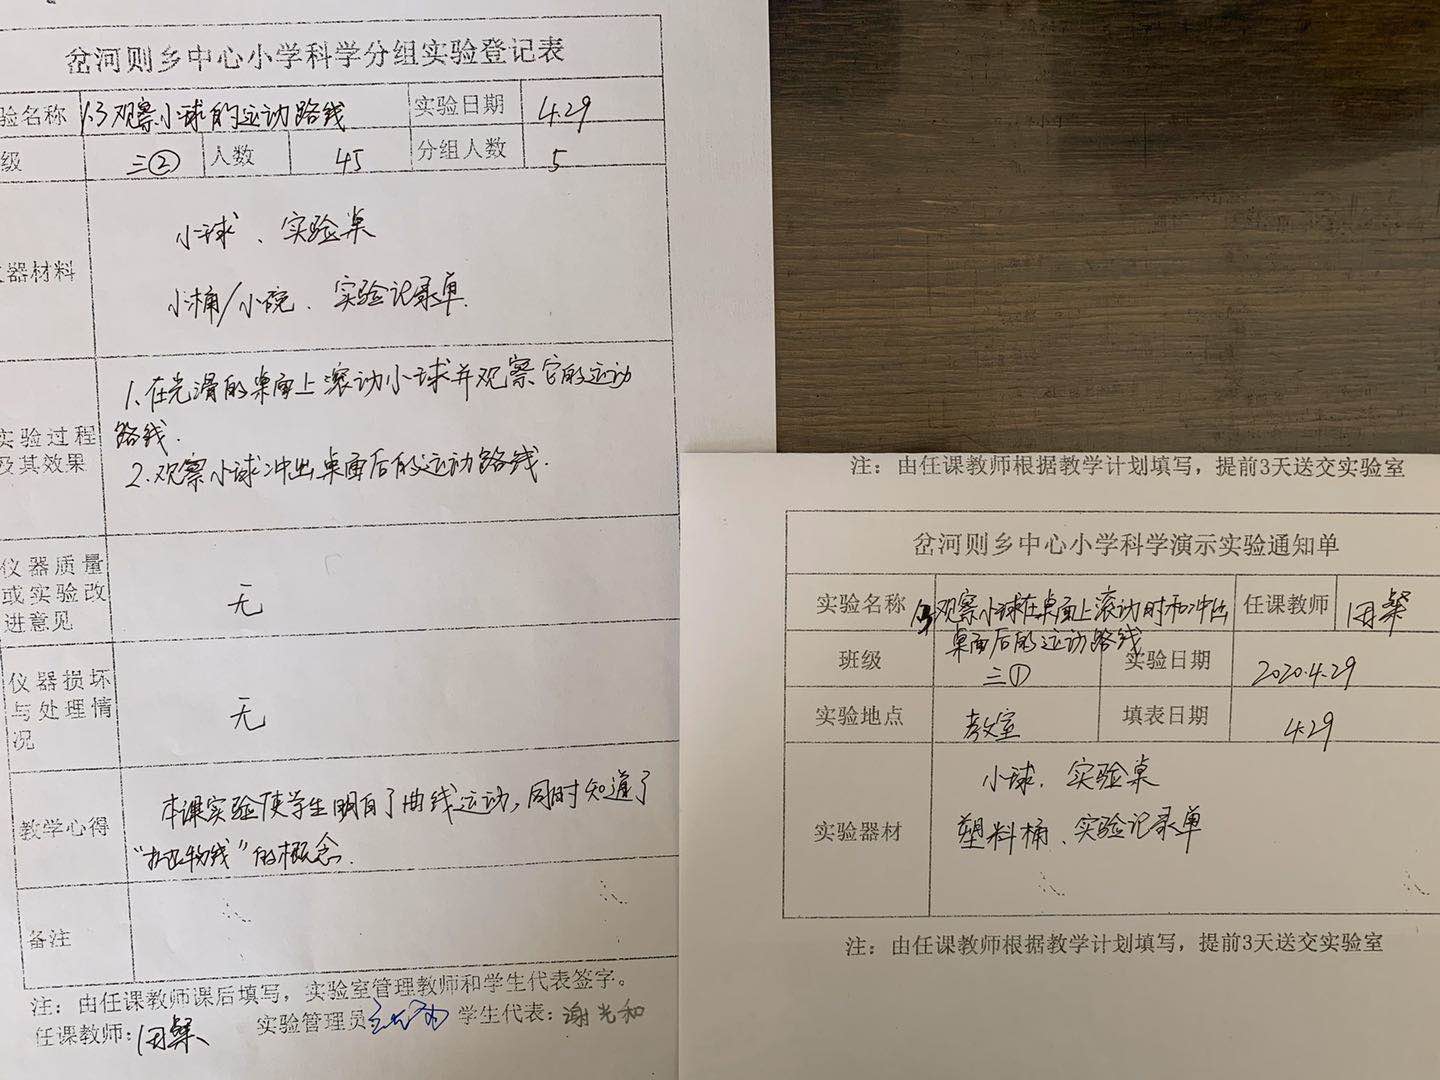 岔河则乡中心小学科学分组实验登记表
验名称 1.3观察小球的运动路线 实验日期 4.29
级 三② 人数 45 分组人数 5
器材料
小球、实验桌
小桶/小碗、实验记录单.
实验过程
及其效果
1、在光滑的桌面上滚动小球并观察它的运动
路线.
2.观察小球冲出桌面后的运动路线.
仪器质量
或实验改
进意见
无
仪器损坏
与处理情
况
无
教学心得
本课实验使学生明白了曲线运动，同时知道了
“抛物线”的概念.
备注
注：由任课教师课后填写，实验室管理教师和学生代表签字。
任课教师: 实验管理员 学生代表：谢光和
注：由任课教师根据教学计划填写，提前3天送交实验室
岔河则乡中心小学科学演示实验通知单
实验名称 观察小球在桌面上滚动时和冲出 任课教师
桌面后的运动路线
班级 三① 实验日期 2020.4.29
实验地点 教室 填表日期 4.29
实验器材
小球、实验桌
塑料桶、实验记录单
注：由任课教师根据教学计划填写，提前3天送交实验室